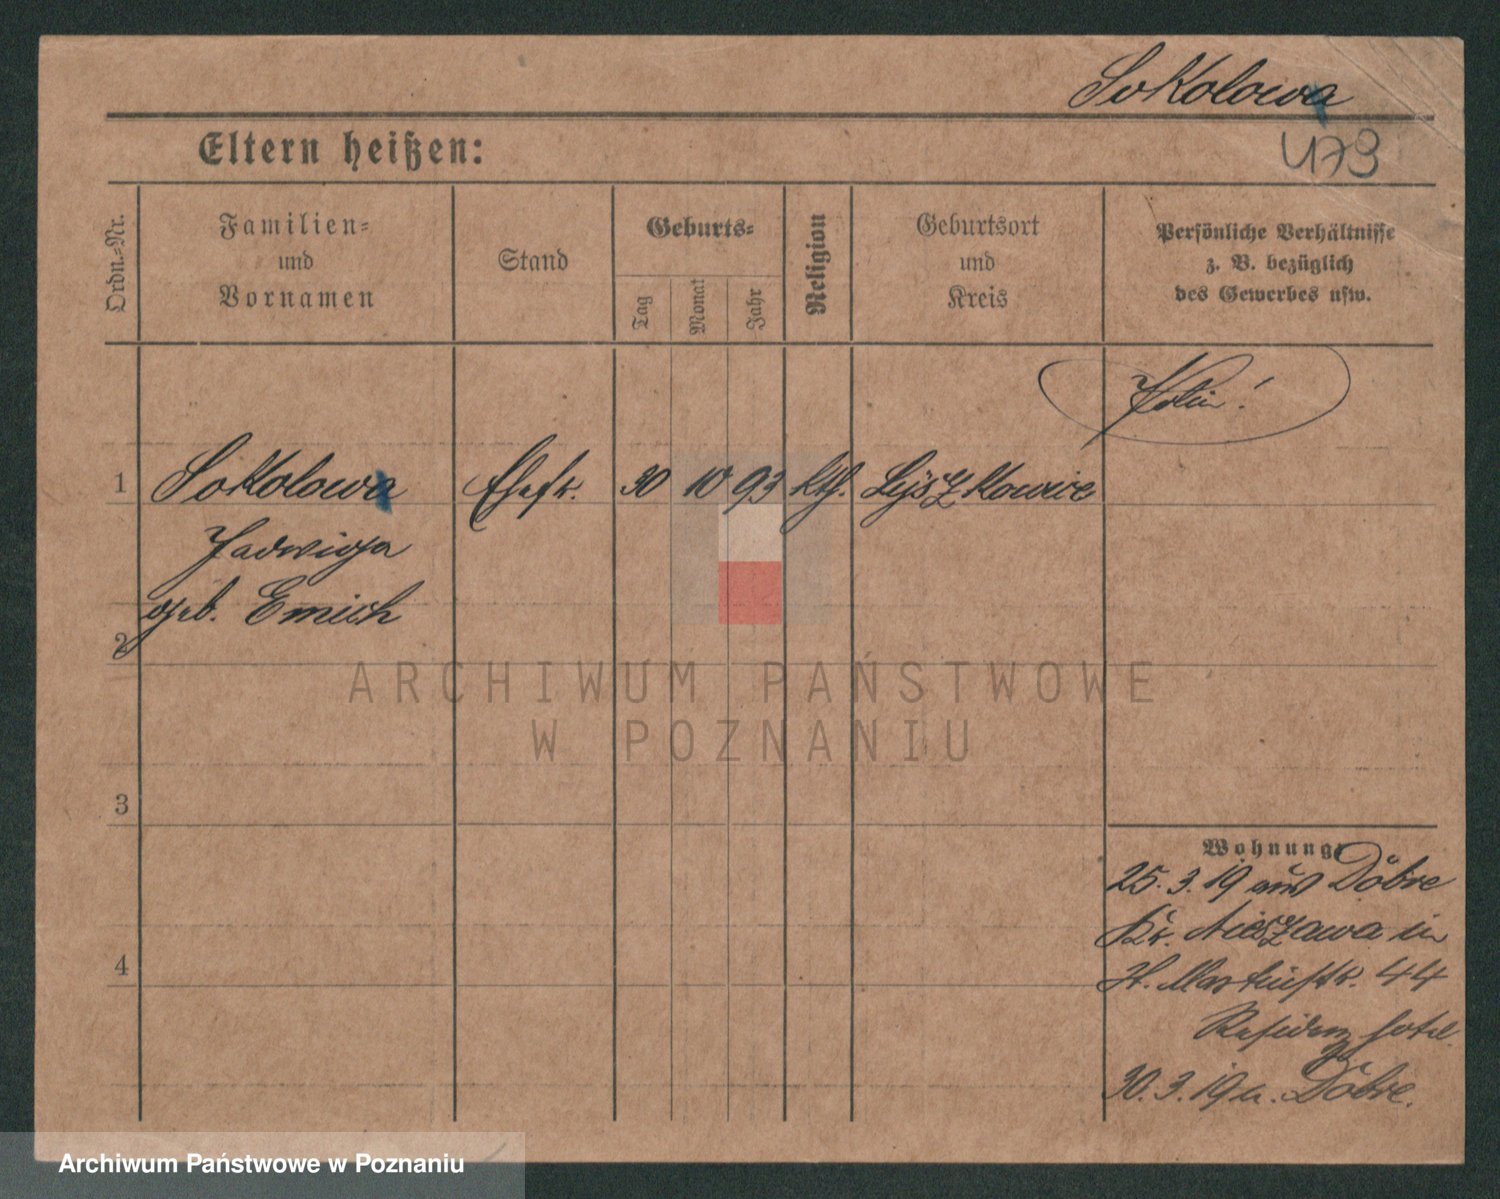 Sokolowa
479
Eltern heißen:
Ordn.=Nr.
Familien=
und
Vornamen
Stand
Geburts=
Tag
Monat
Jahr
Religion
Geburtsort
und
Kreis
Persönliche Verhältnisse
z. B. bezüglich
des Gewerbes usw.
1 Sokolowa Ehefr. 30 10 93 kth.
Jadwiga
geb. Emich
2
3
4
Wohnung:
25.3.19 aus Dobre
Kr. Nieszawa in
H. Martinstr. 44
Residenz hotel.
30.3.19 n. Dobre.
ARCHIWUM PAŃSTWOWE
W POZNANIU
Archiwum Państwowe w Poznaniu